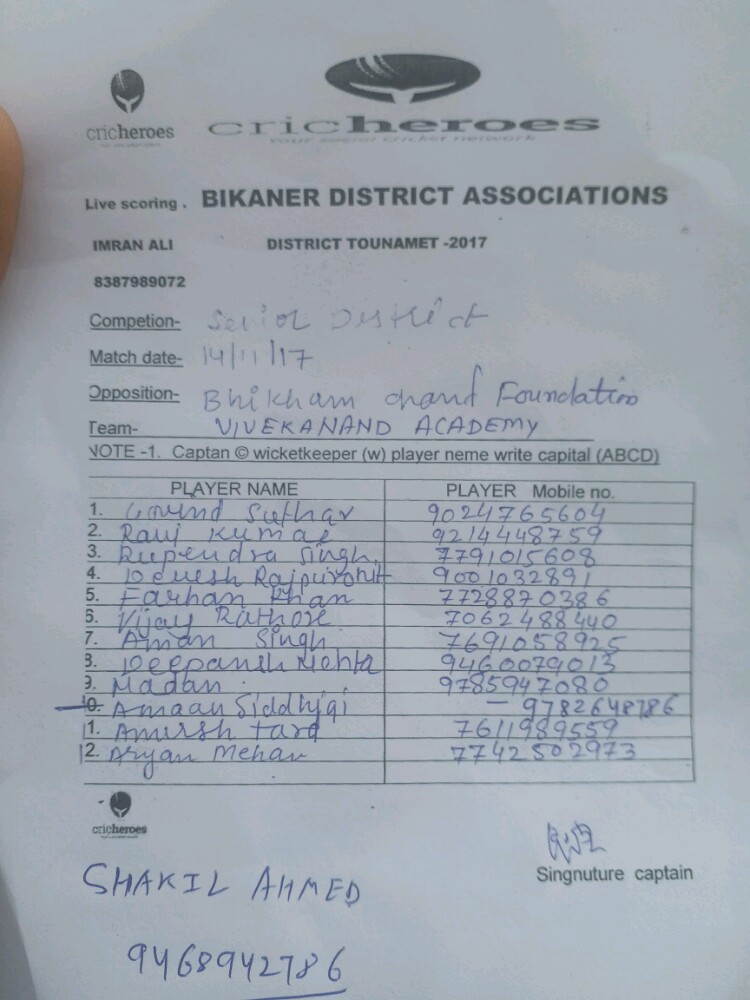 cricheroes
cricheroes
your social cricket network
Live scoring . BIKANER DISTRICT ASSOCIATIONS
IMRAN ALI DISTRICT TOUNAMET -2017
8387989072
Competion- Senior District
Match date- 14/11/17
Opposition- Bhikham chand Foundation
Team- VIVEKANAND ACADEMY
VOTE -1. Captan © wicketkeeper (w) player neme write capital (ABCD)
PLAYER NAME PLAYER Mobile no.
1. Govind Suthar 9024765604
2. Ravi Kumar 9214448759
3. Rupendra Singh 7791015608
4. Devesh Rajpurohit 9001032891
5. Farhan Khan 7728870386
6. Vijay Rathore 7062488440
7. Aman Singh 7691058925
8. Deepansh Mehta 9460079013
9. Madan 9785947080
10. Amaan Siddhiqi - 9782648786
11. 7611989559
12. Aryan 7742502973
cricheroes
Singnuture captain
SHAKIL AHMED
9468942786